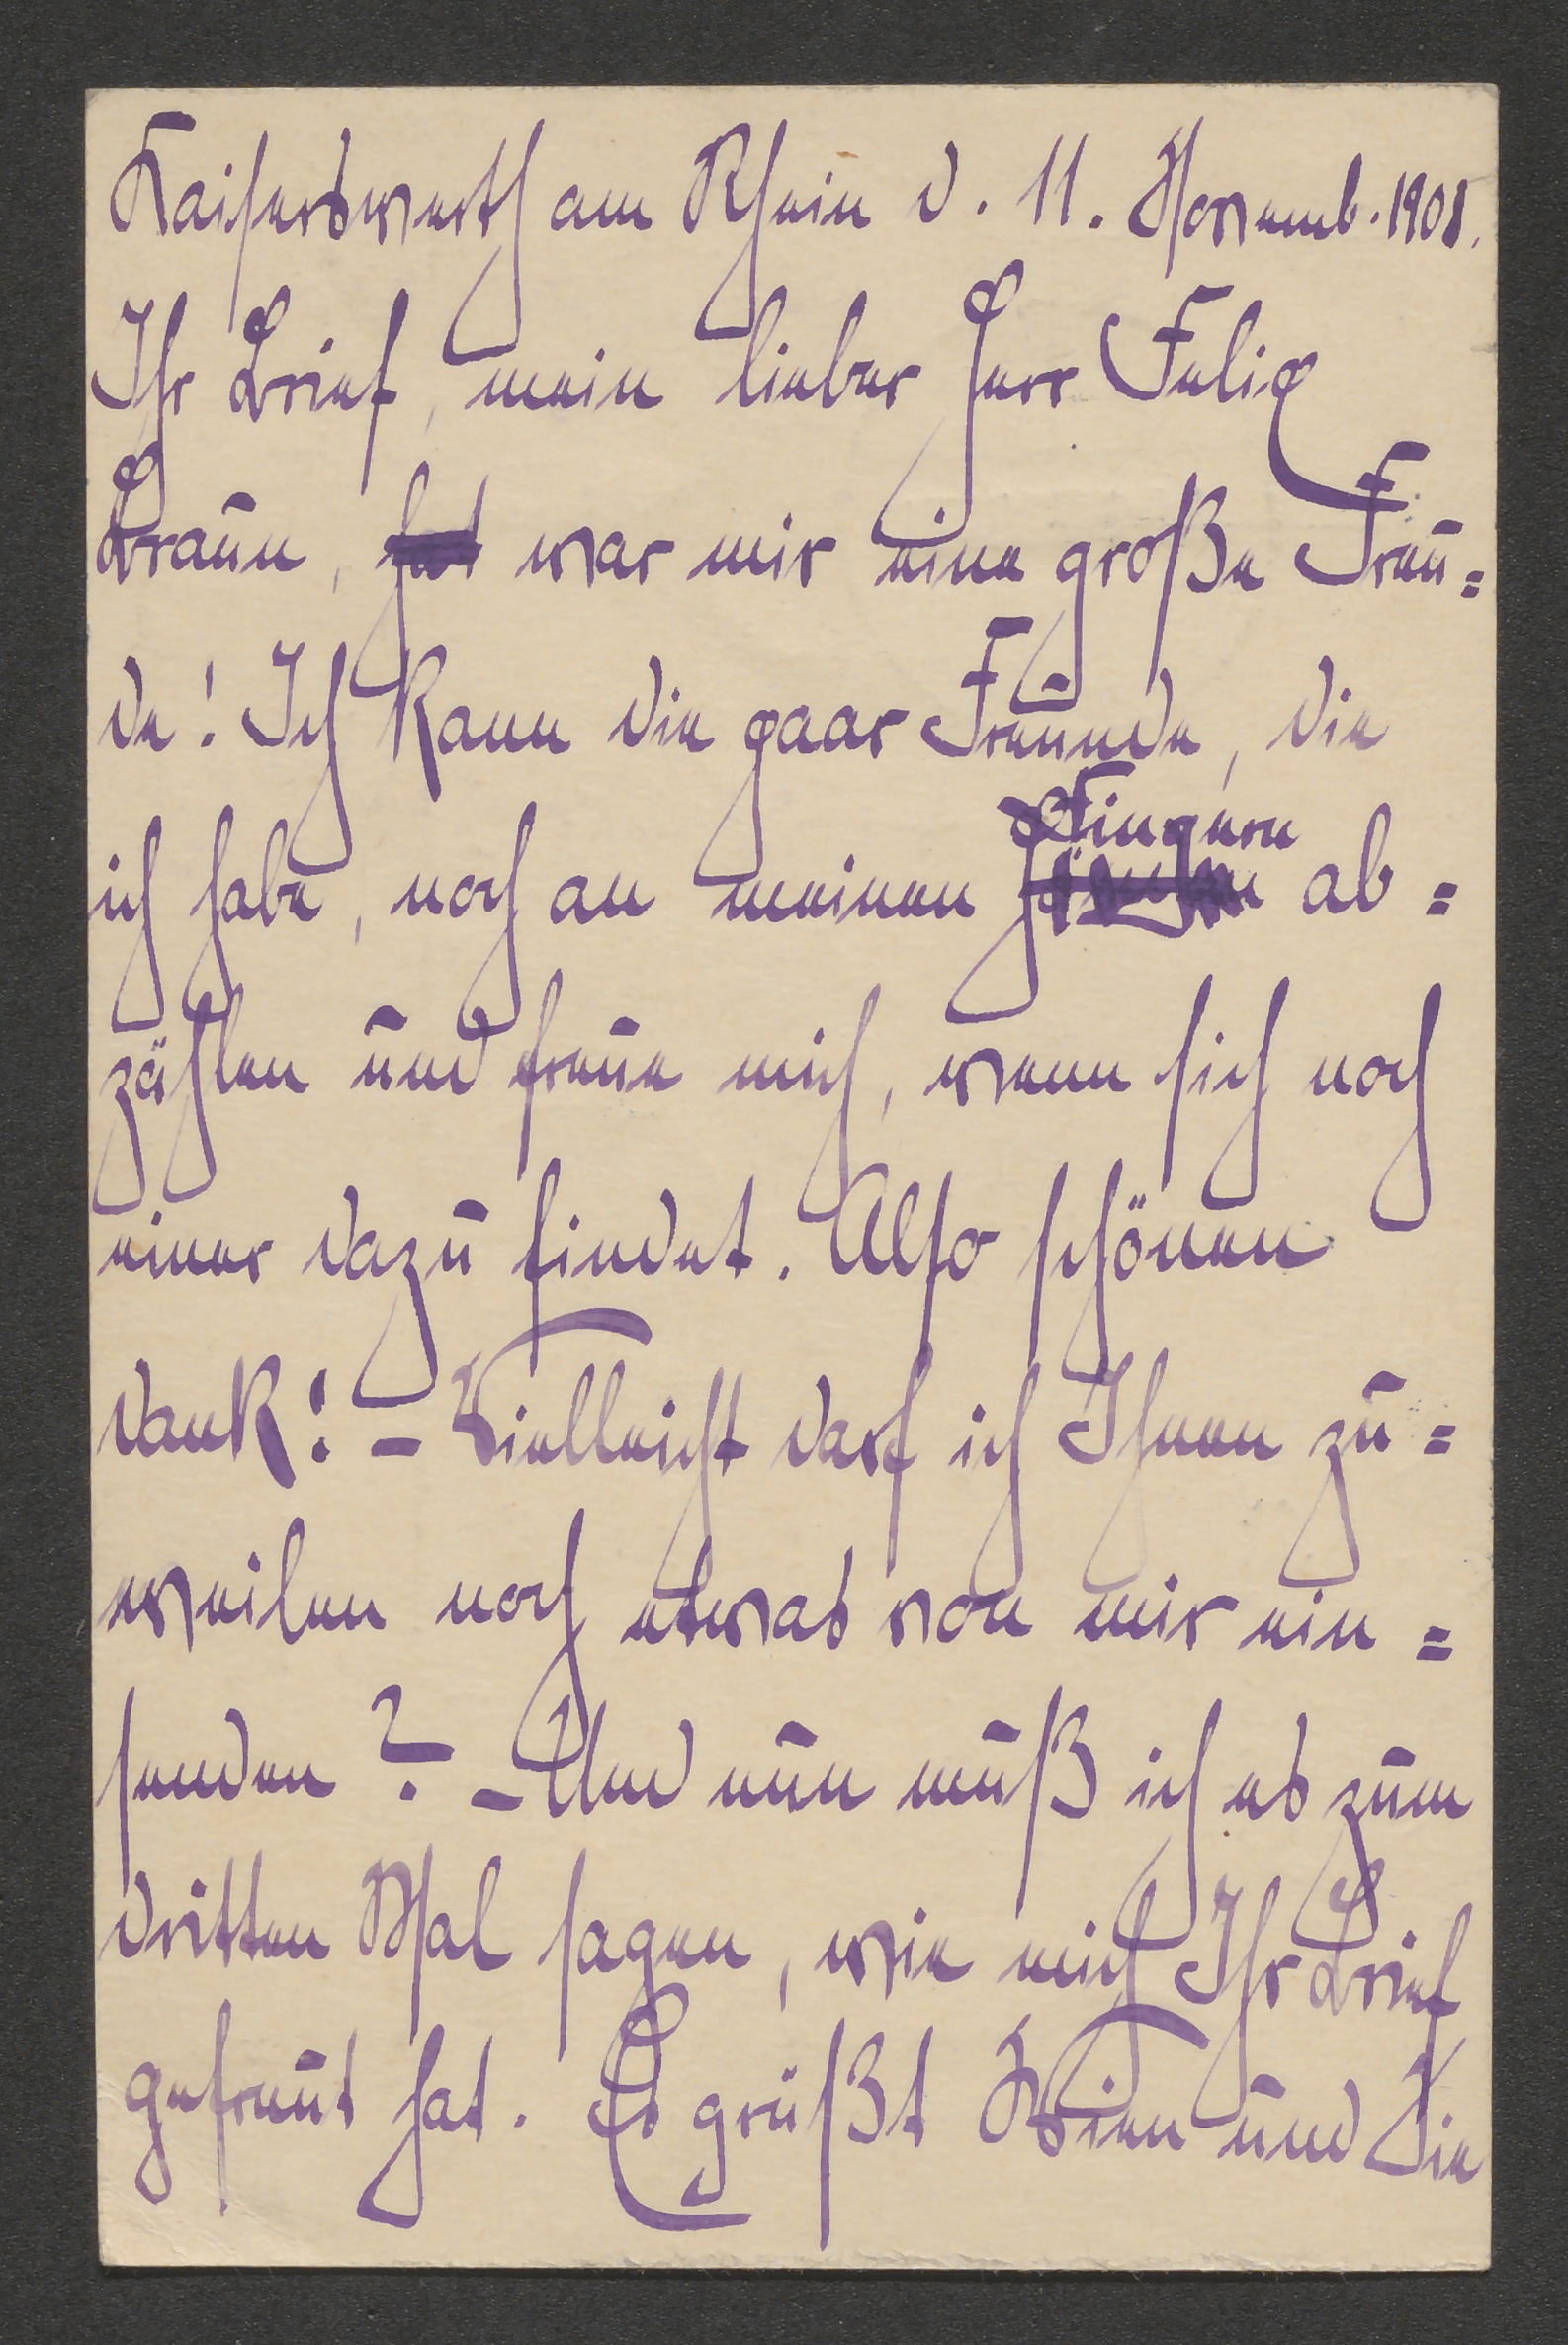 Kaiserswerth am Rhein d. 11. Novemb. 1908.
Ihr Brief, mein lieber Herr Felix
Braun, hat war mir eine große Freu=
de! Ich kann die paar Freunde, die
ich habe, noch an meinen Fingern ab=
zählen und freue mich, wenn sich noch
einer dazu findet. Also schönen
dank! – Vielleicht darf ich Ihnen zu=
weilen noch etwas von mir ein=
senden? – Und nun muß ich es zum
dritten Mal sagen, wie mich Ihr Brief
gefreut hat. Es grüßt Wien und Sie